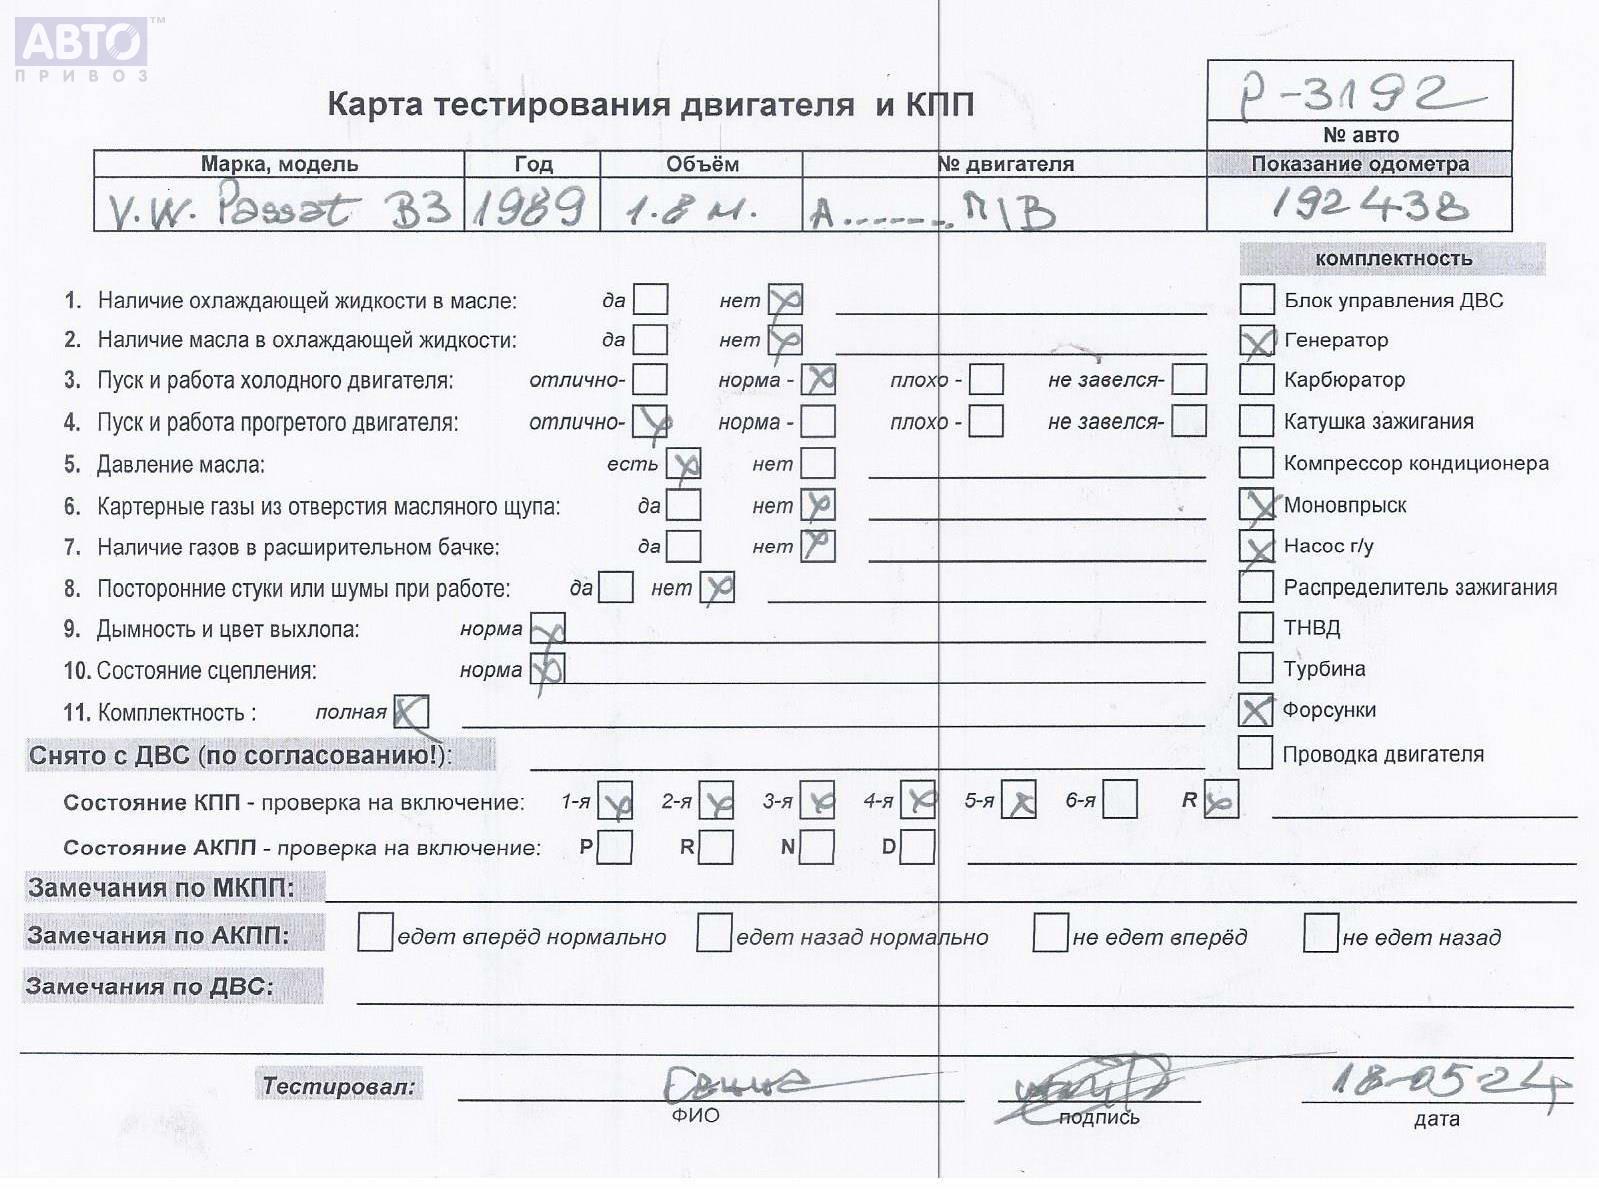 АВТО™
ПРИВОЗ
Карта тестирования двигателя и КПП
P-3192
№ авто
Марка, модель Год Объём № двигателя Показание одометра
V.W. Passat B3 1989 1.8 м. A....... П\В 192438
комплектность
1. Наличие охлаждающей жидкости в масле: да нет Блок управления ДВС
2. Наличие масла в охлаждающей жидкости: да нет Генератор
3. Пуск и работа холодного двигателя: отлично- норма - плохо - не завелся- Карбюратор
4. Пуск и работа прогретого двигателя: отлично- норма - плохо - не завелся- Катушка зажигания
5. Давление масла: есть нет Компрессор кондиционера
6. Картерные газы из отверстия масляного щупа: да нет Моновпрыск
7. Наличие газов в расширительном бачке: да нет Насос г/у
8. Посторонние стуки или шумы при работе: да нет Распределитель зажигания
9. Дымность и цвет выхлопа: норма ТНВД
10. Состояние сцепления: норма Турбина
11. Комплектность : полная Форсунки
Снято с ДВС (по согласованию!): Проводка двигателя
Состояние КПП - проверка на включение: 1-я 2-я 3-я 4-я 5-я 6-я R
Состояние АКПП - проверка на включение: P R N D
Замечания по МКПП:
Замечания по АКПП: едет вперёд нормально едет назад нормально не едет вперёд не едет назад
Замечания по ДВС:
Тестировал: 18-05-24
ФИО подпись дата